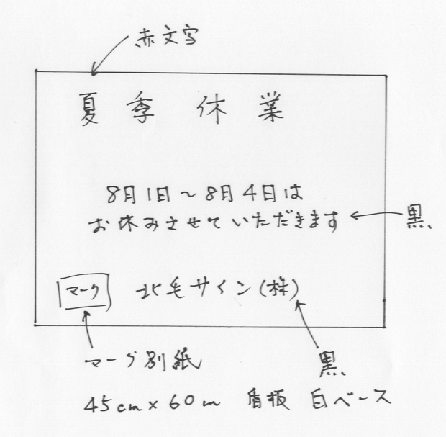 赤文字
夏季休業
8月1日〜8月4日は
お休みさせていただきます
黒
マーク 北毛サイン(株)
マーク別紙 黒
45cm×60m 看板 白ベース